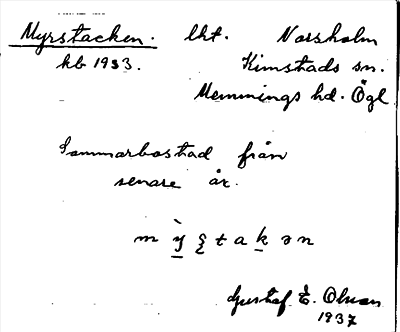 Myrstacken. lht. Norsholm
kb 1933. Kimstads sn.
Memmings hd. Ögl
Sommarbostad från
senare år.
m ỳ̠ ʂ t a k̠ ə n
Gustaf E. Olson
1937